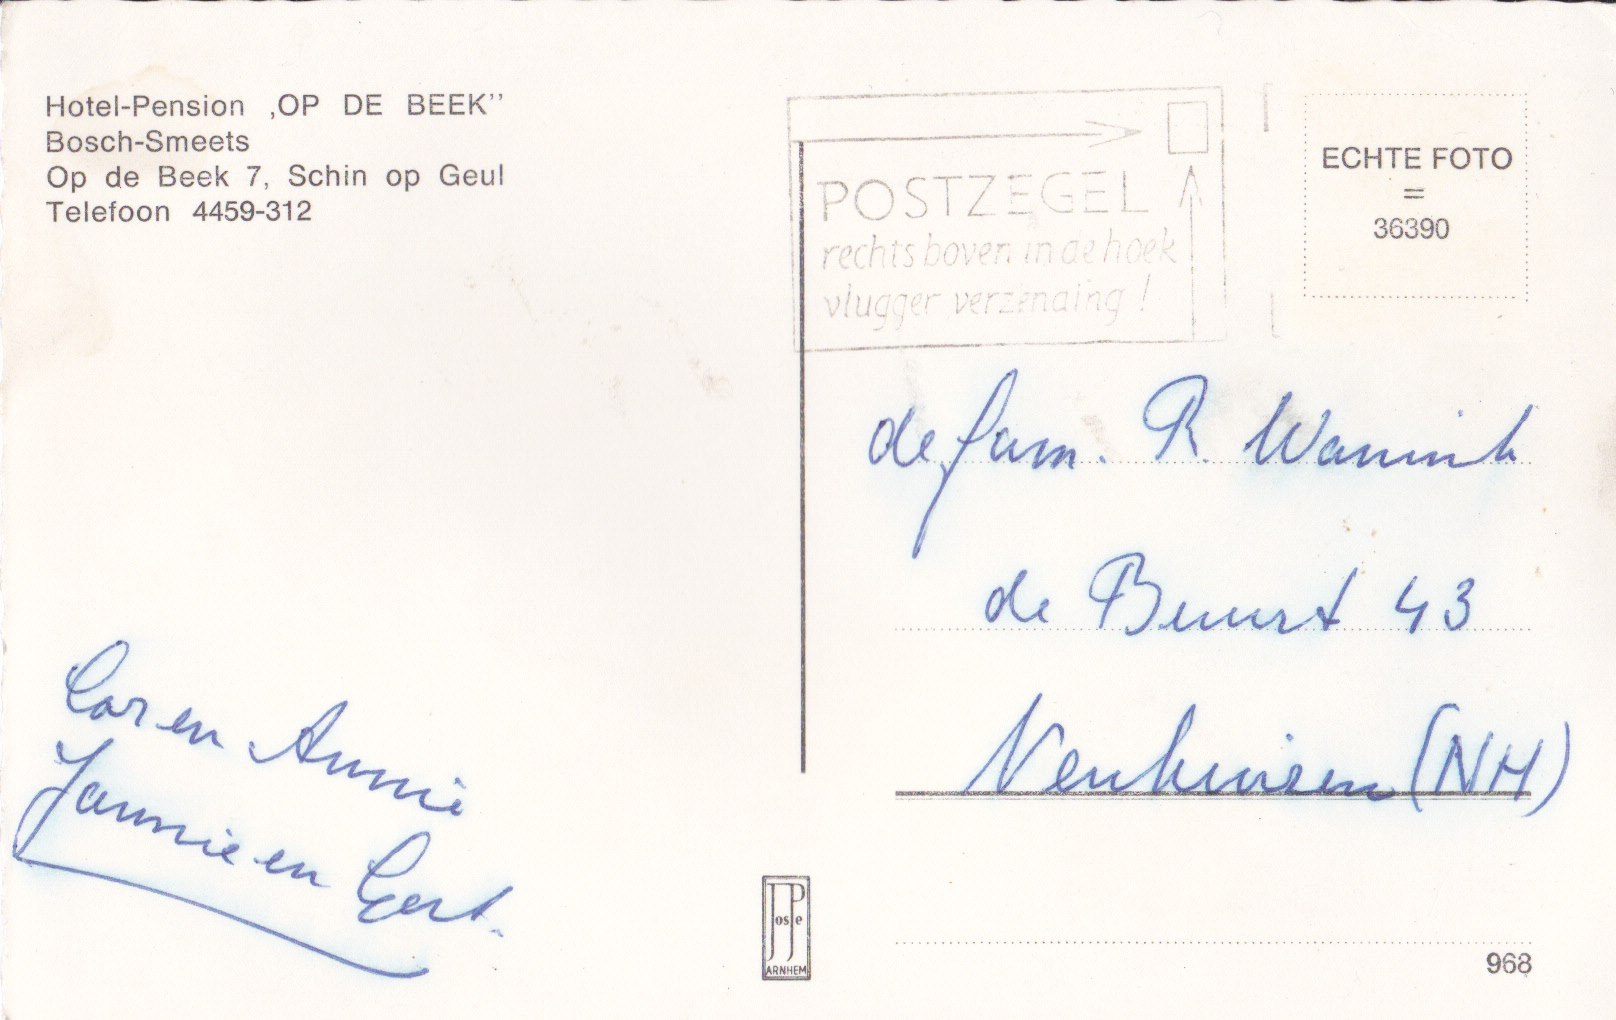 Hotel-Pension ,OP DE BEEK''
Bosch-Smeets
Op de Beek 7, Schin op Geul
Telefoon 4459-312
POSTZEGEL
rechts boven in de hoek
vlugger verzending !
ECHTE FOTO
=
36390
de fam. R. Wannink
de Buurt 43
Venhuizen (NH)
Cor en Annie
Jannie en Gert.
JosPe
ARNHEM
968